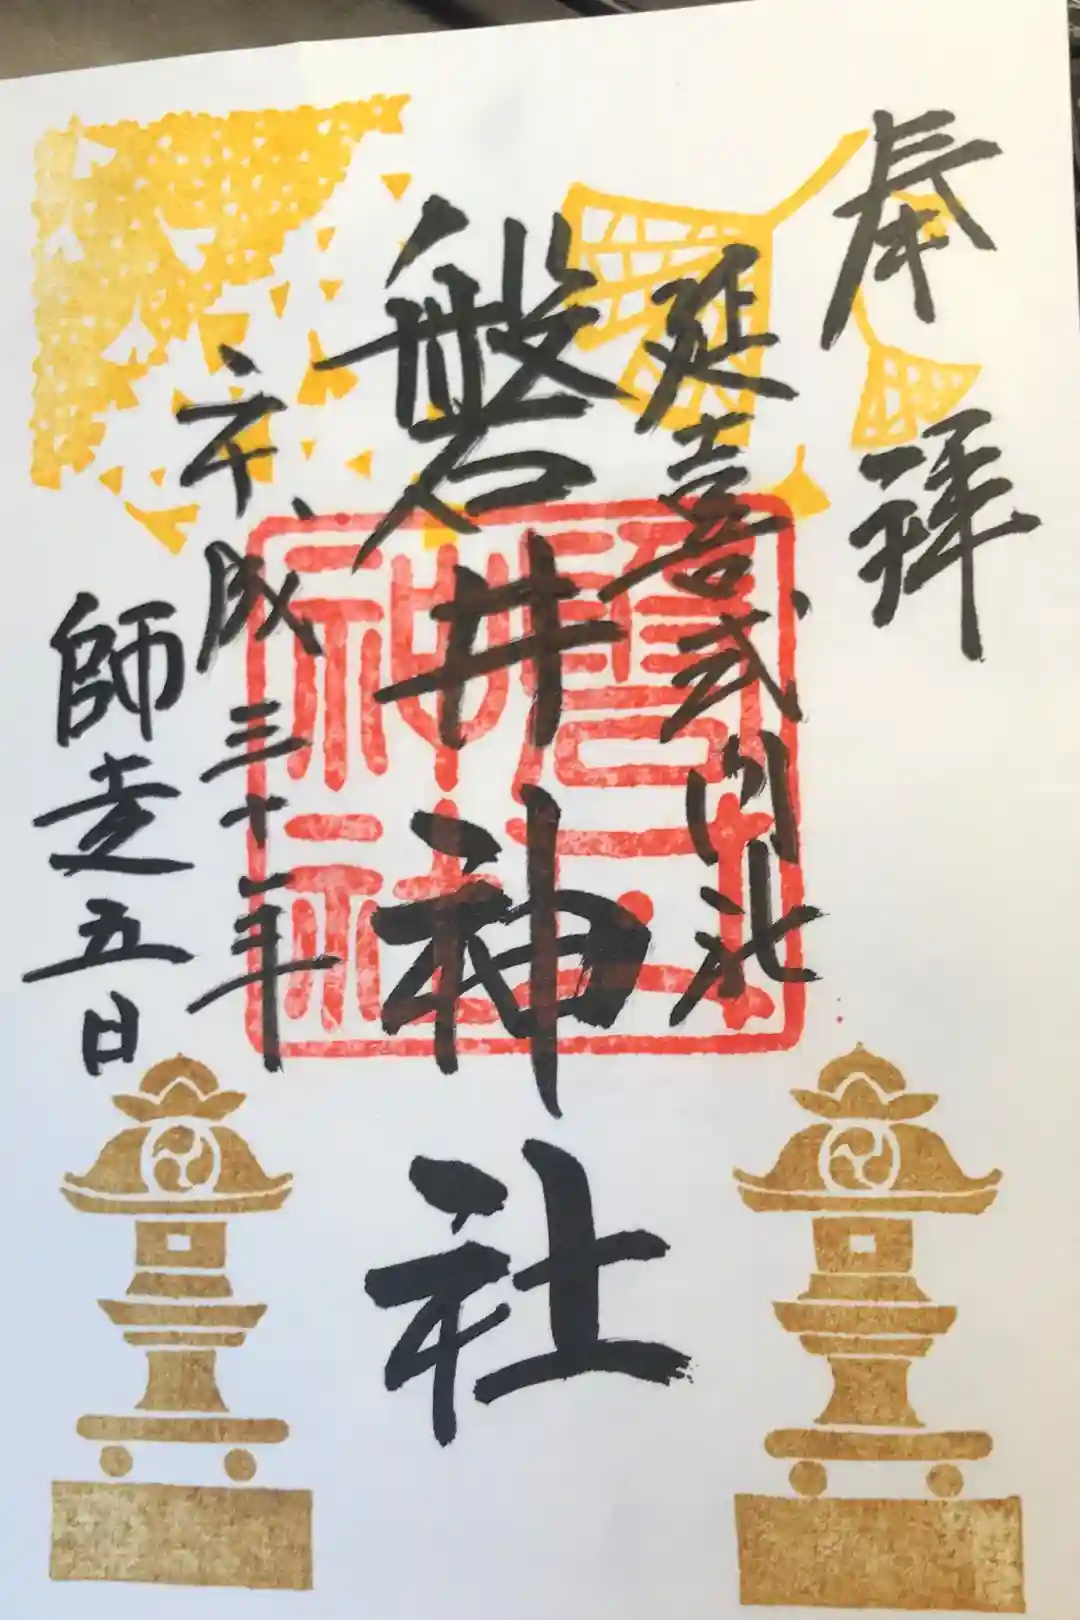 奉拝
延喜式内社
磐井神社
平成三十年
師走五日
磐井
神社